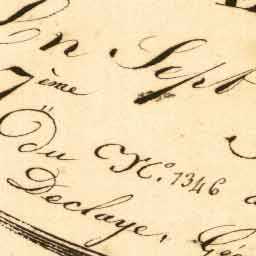 En Sept
7ème
Du N.º 1346
Declaye, Gé